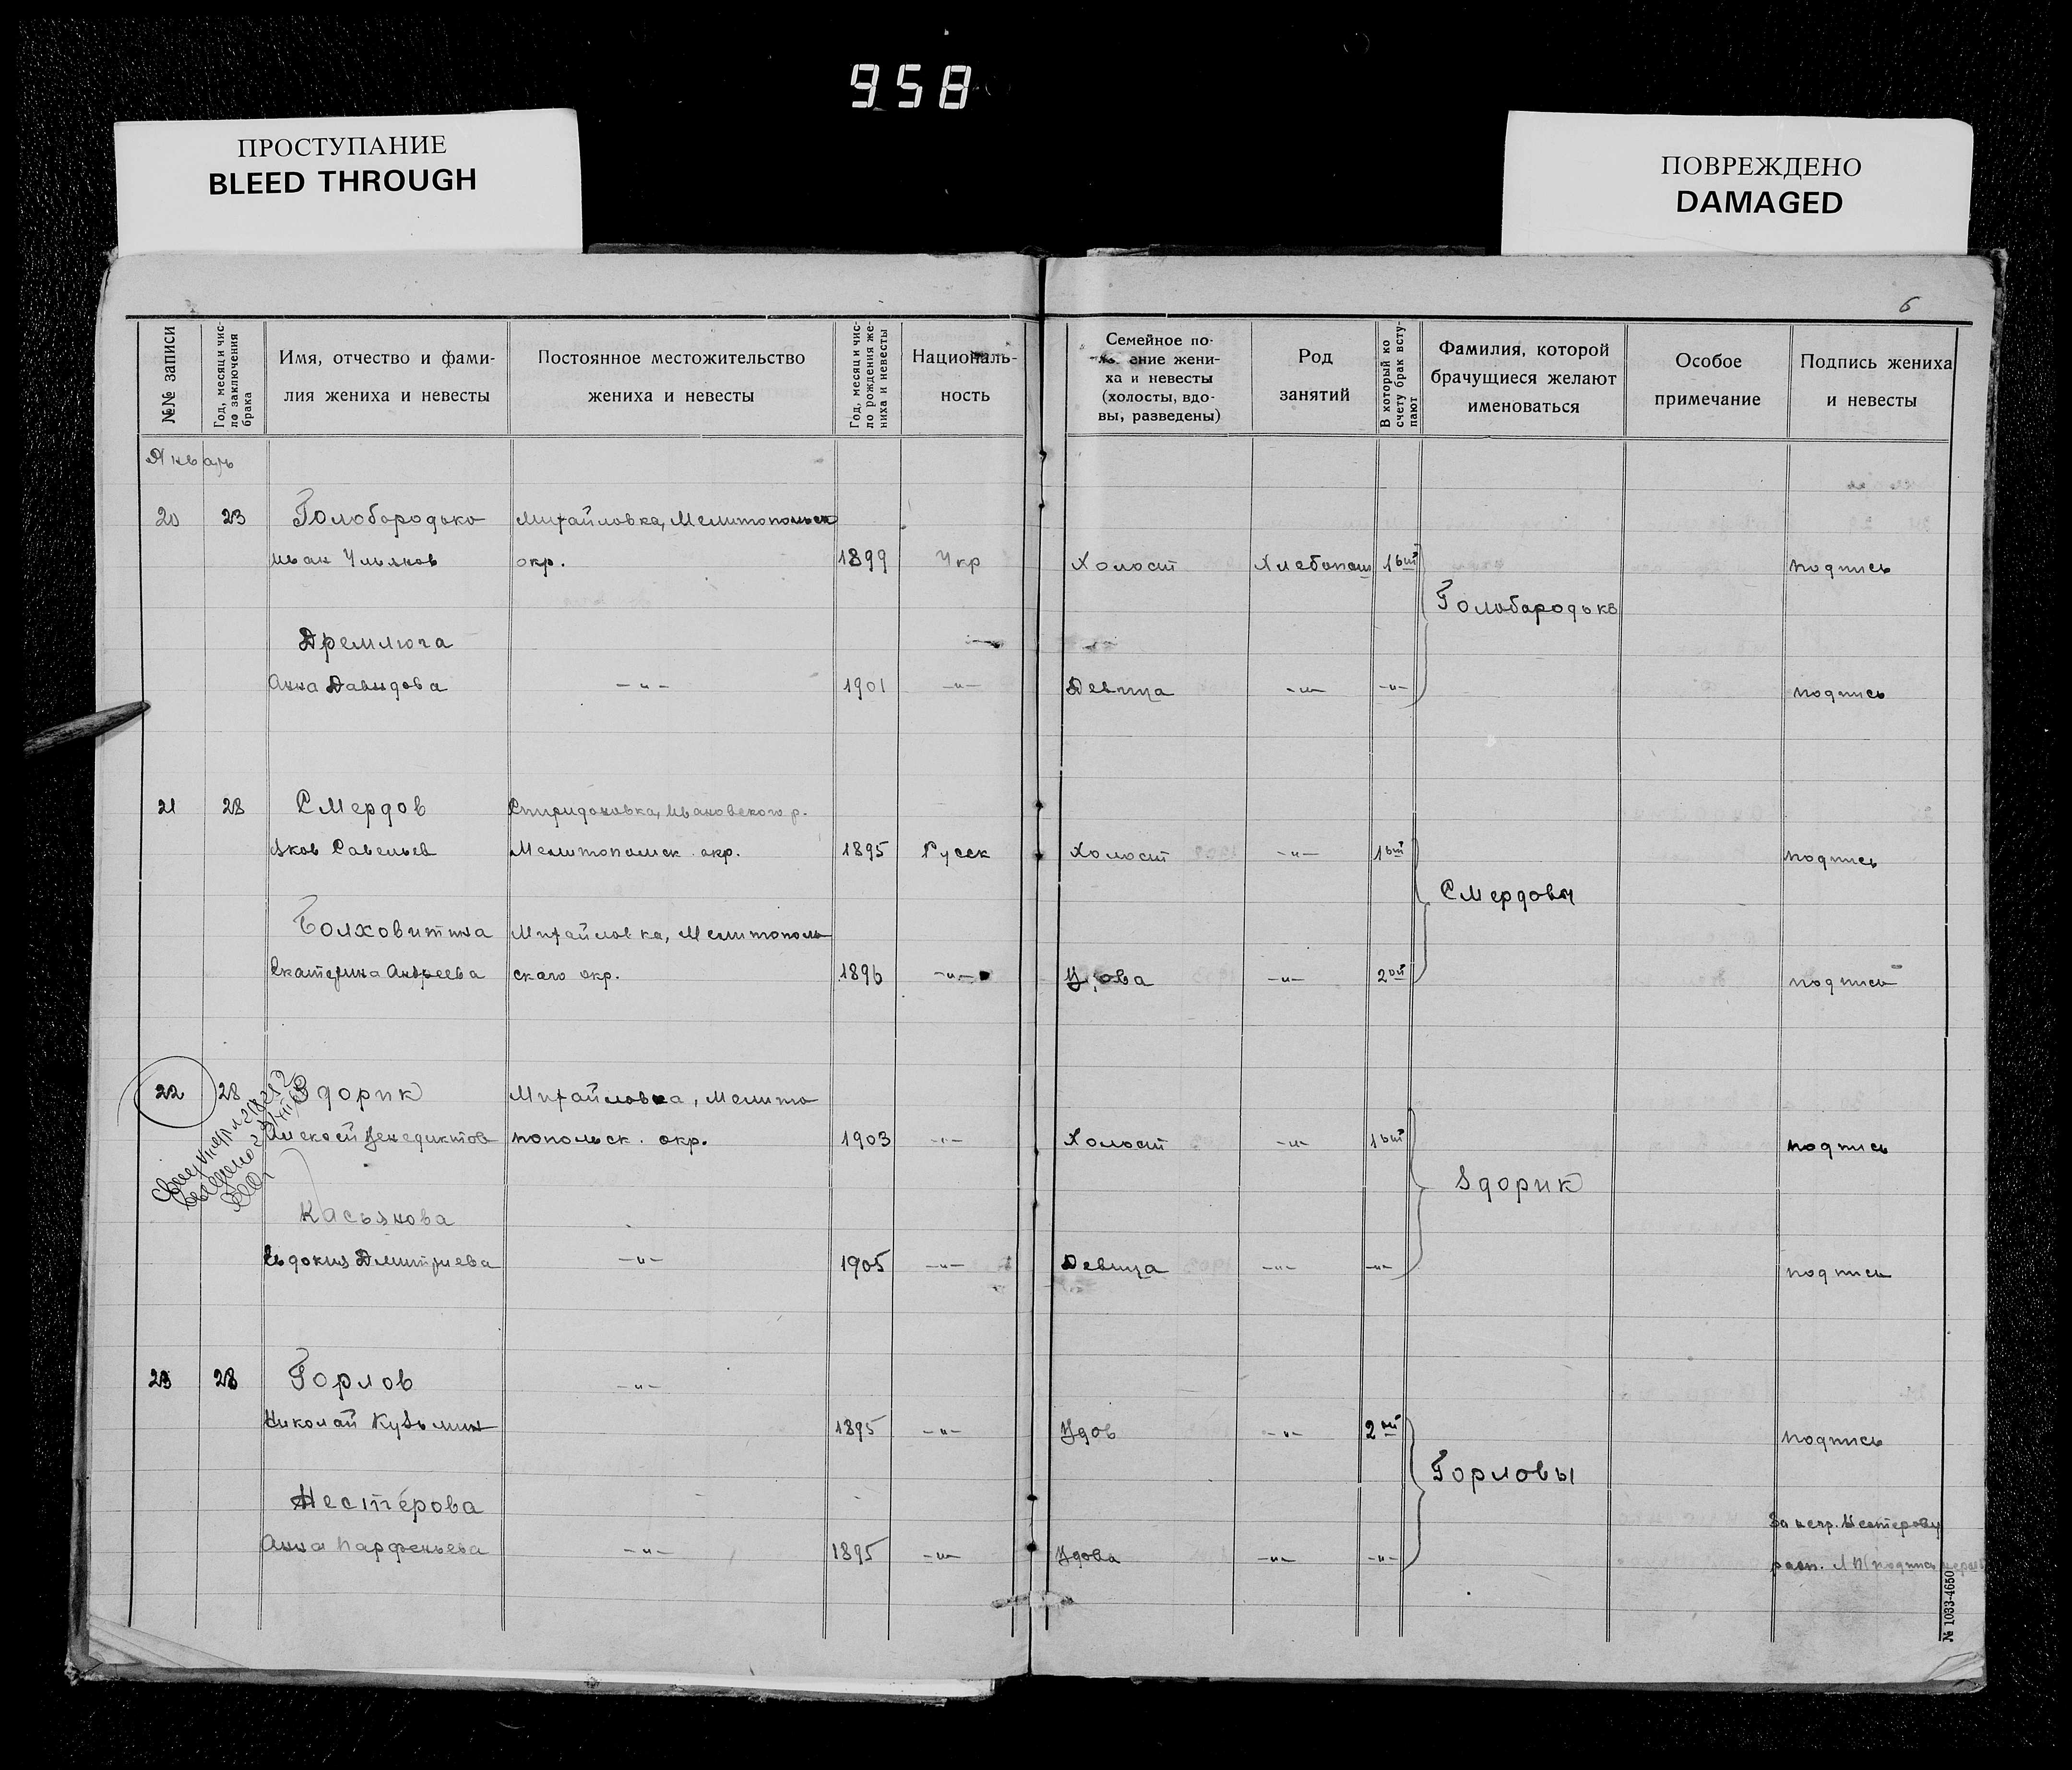 958
ПРОСТУПАНИЕ
BLEED THROUGH
ПОВРЕЖДЕНО
DAMAGED
6
№№ записи
Год, месяц и чис-
ло заключения
брака
Имя, отчество и фами-
лия жениха и невесты
Постоянное местожительство
жениха и невесты
Год, месяц и чис-
ло рождения же-
ниха и невесты
Националь-
ность
Семейное по-
ание жени-
ха и невесты
(холосты, вдо-
вы, разведены)
Род
занятий
В который ко
счету брак всту-
пают
Фамилия, которой
брачущиеся желают
именоваться
Особое
примечание
Подпись жениха
и невесты
Январь
20 23 Голобородько Михайловка, Мелитопольск
Иван Ульянов окр. 1899 Укр Холост Хлебопаш 1ый подпись
Голобародько
Дремлюга
Анна Давидова -„- 1901 -„- Девица -„- -„- подпись
21 28 Смердов Спиридоновка, Ивановского р.
Яков Савельев Мелитопольск. окр. 1895 Русск Холост -„- 1ый подпись
Смердовы
Болховитина Михайловка, Мелитополь
Екатерина Андреева скаго окр. 1896 -„- -„- 2ой подпись
22 28 Здорик Михайловка, Мелито
Алексей Венедиктов попольск. окр. 1903 -„- Холост -„- 1ый подпись
Здорик
Касьянова
Евдокия Дмитриева -„- 1905 -„- Девица -„- -„- подпись
23 28 Горлов -„-
Николай Кузьмин 1895 -„- Удов -„- 2ой подпись
Горловы
Нестерова За негр. Нестерову
Анна Парфеньева -„- 1895 -„- Удова -„- -„- расп. (подпись
№ 1033-4650